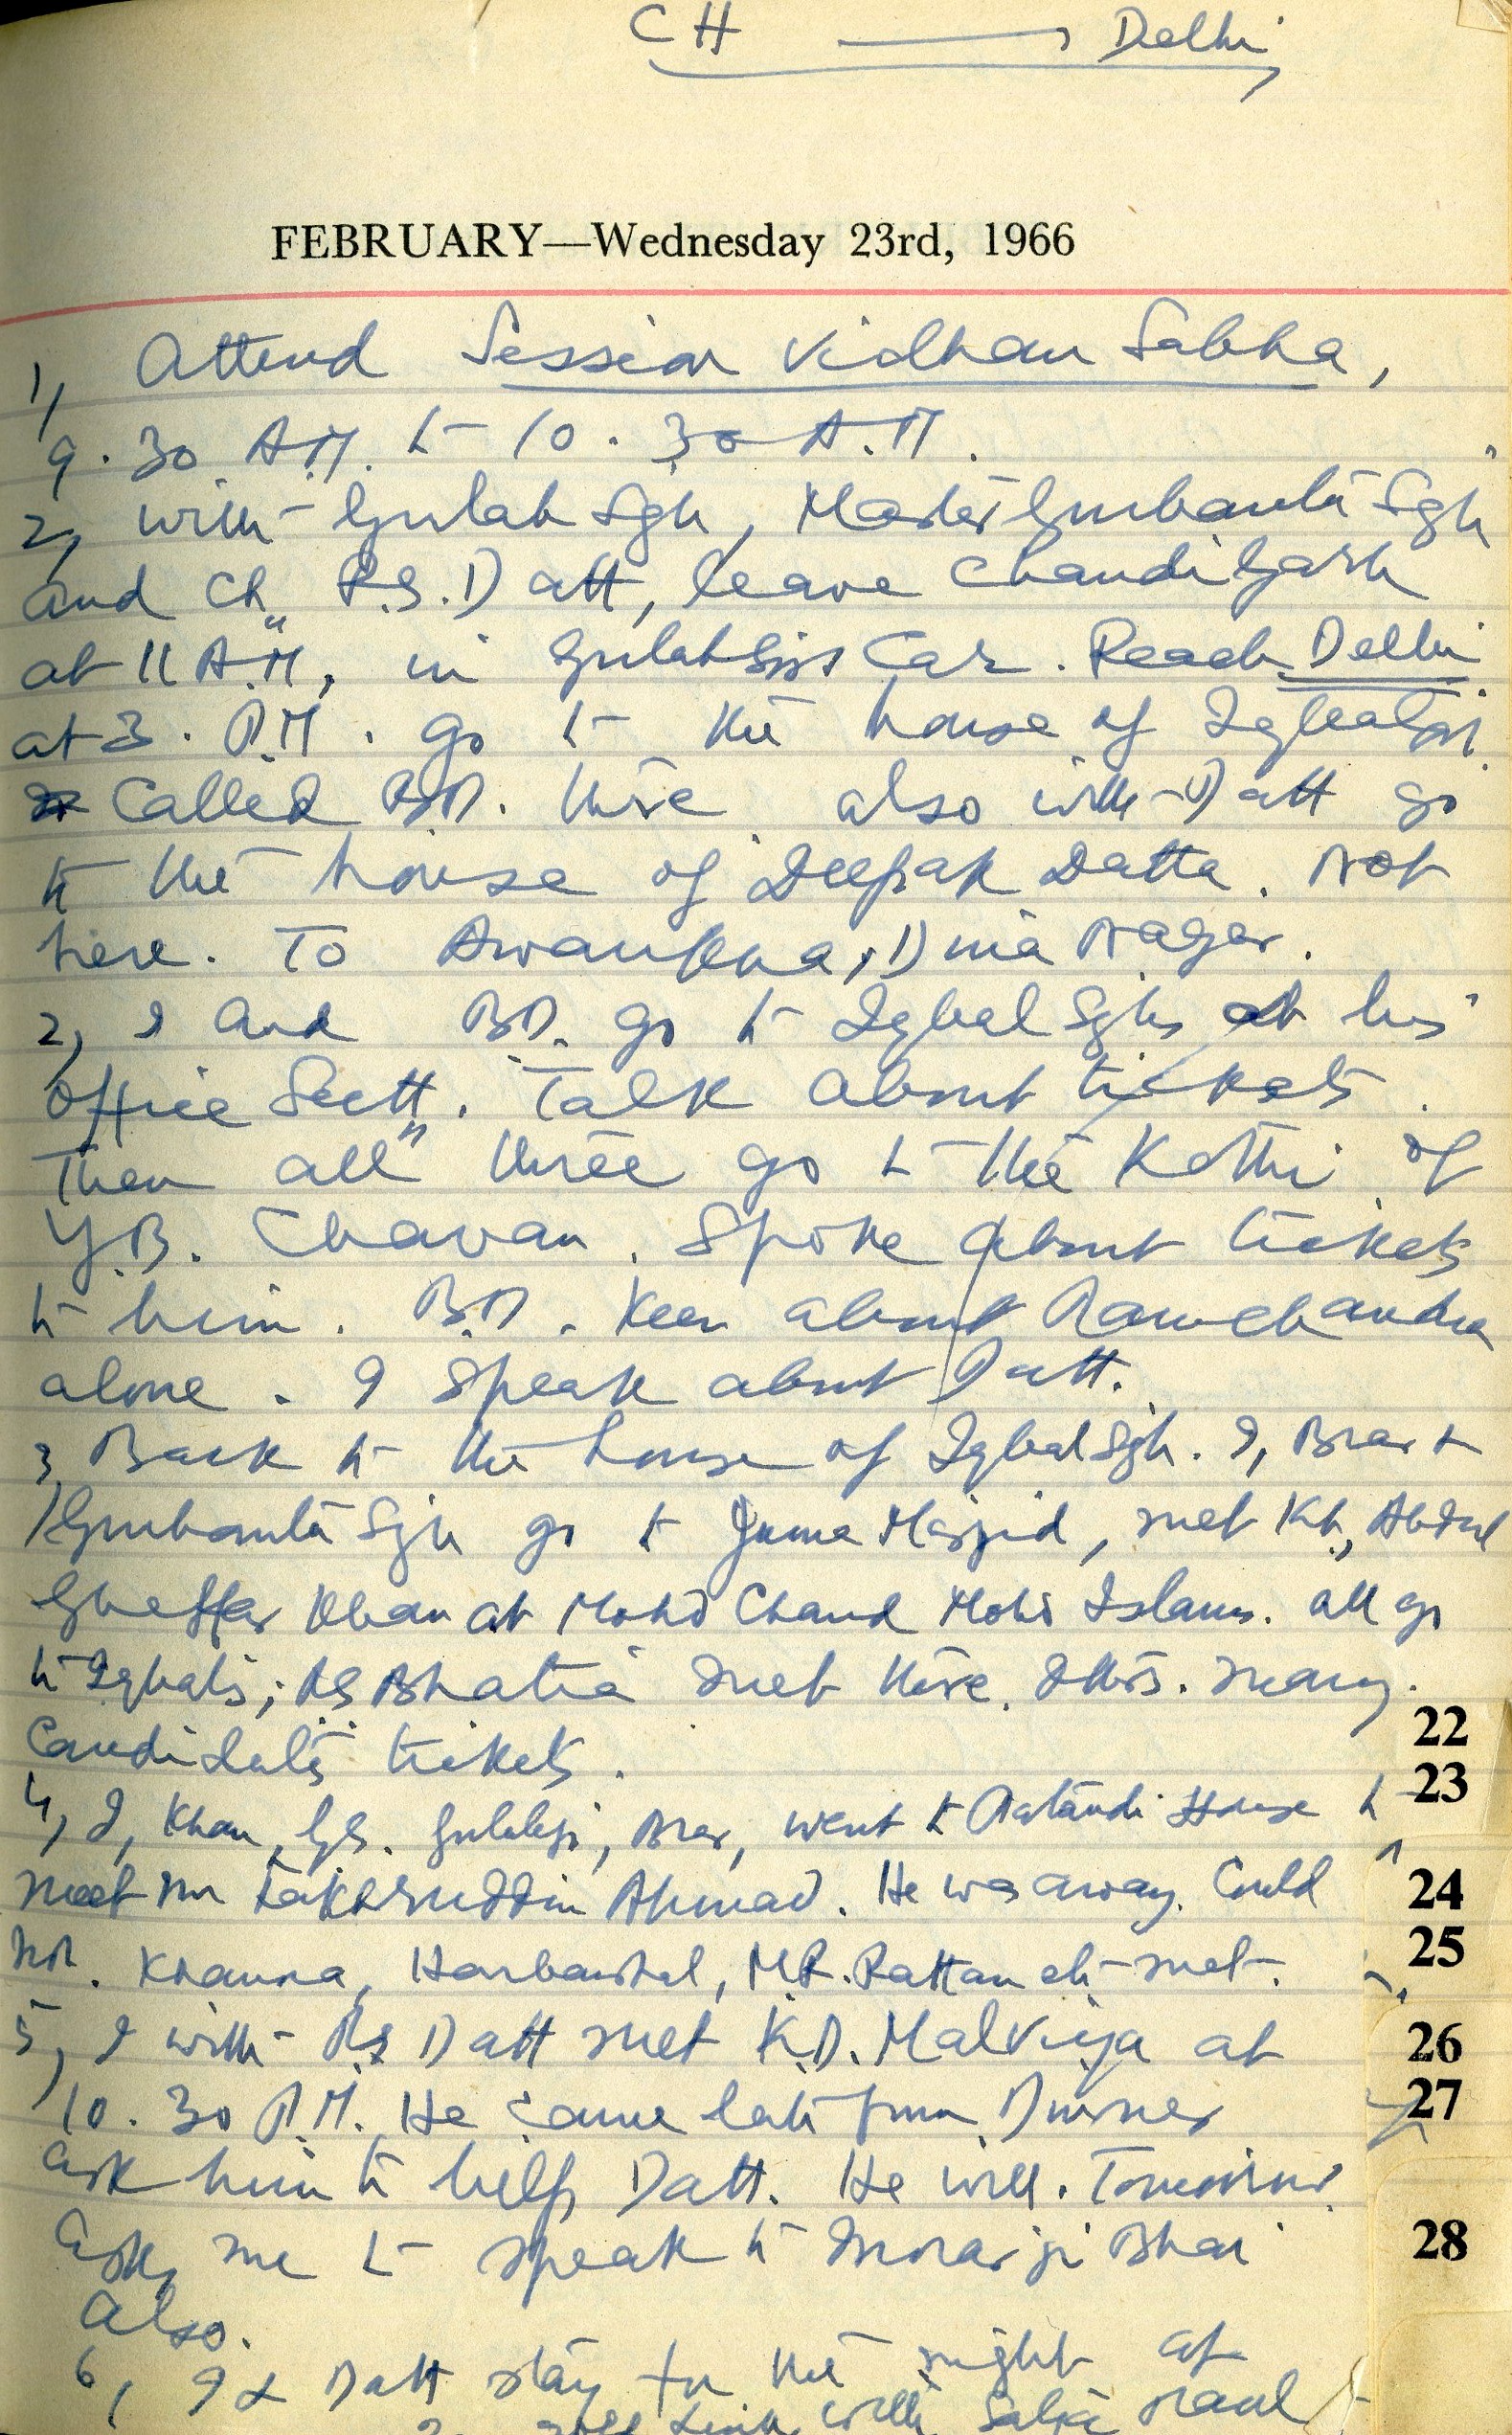 CH → Delhi
FEBRUARY—Wednesday 23rd, 1966
1, Attend Session Vidhan Sabha,
9.30 A.M. to 10.30 A.M.
2, with Gulab Sgh, Master Gurbanta Sgh
and Ch, R.S. Datt, leave Chandigarh
at 11 A.M, in Gulab Sgs Car. Reach Delhi
at 3. P.M. go to the house of
Called B.D. there also with Datt go
to the house of Deepak Datta. Not
here. To Awankha, Dina Nagar.
2, I and B.D. go to Iqbal Sgh, at his
office Sectt. Talk about tickets.
Then all three go to the Kothi of
Y.B. Chavan. Spoke about tickets
to him. B.D. keen about Ramchandra
alone. I speak about Datt.
3, Back to the house of Iqbal Sgh. I, Brar &
Gurbanta Sgh go to Juma Masjid, met Kh, Abdul
Ghaffar Khan at Mohd Chand Mohd Islam. all go
to Iqbals; RS Bhatia met there. Others. many.
Candidates tickets.
4, I, Khan, GS. Gulabji, Brar, went to House to
meet Mr Fakhruddin Ahmad. He was away. Could
not. Khanna, Harbanslal, M.R. Rattan etc met.
5, I with RS Datt met K.D. Malviya at
10.30 P.M. He came late from Dinner
ask him to help Datt. He will. Tomorrow
ask me to speak to Morarji Bhai
also.
6, I & Datt stay for the night at
with
22
23
24
25
26
27
28